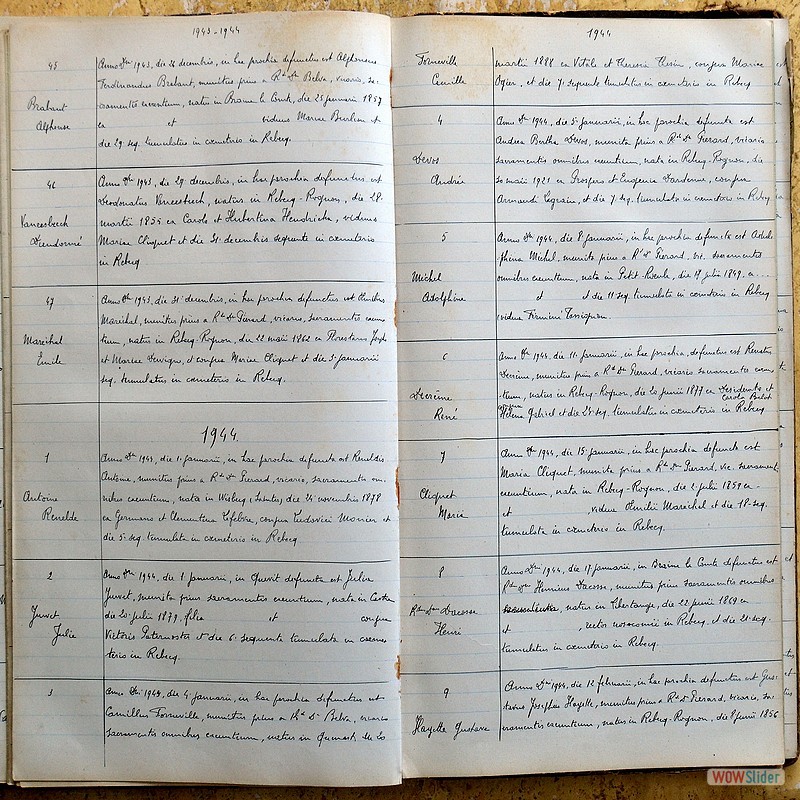 1943-1944
45
Brabant
Alphonse
Anno Dni 1943, die 26 decembris, in hac prochia defunctus est Alphonsus
Ferdinandus Brabant, munitus prius a Rdo Dno Belva, vicario, sa-
cramentis exeuntium, natus in Braine le Comte, die 25 januarii 1857
ex et viduus Mariae et
die 29 seq. tumulatus in cæmeterio in Rebecq.
46
Vaneesbeeck
Dieudonné
Anno Dni 1943, die 29 decembris, in hac prochia defunctus est
Deodonatus Vaneesbeeck, natus in Rebecq-Rognon, die 28
martii 1855 ex Carolo et Hubertina Hendrickx, viduus
Mariae Cliquet et die 31 decembris sequente in cæmeterio
in Rebecq
47
Maréchal
Emile
Anno Dni 1943, die 31 decembris, in hac prochia defunctus est Aemilius
Maréchal, munitus prius a Rdo Dno Pierard, vicario, sacramentis exeun-
tium, natus in Rebecq-Rognon, die 22 maii 1862 ex Florestano Joseph
et Mariae Devigne, et conjux Mariae Cliquet et die 3 januarii
seq. tumulatus in cæmeterio in Rebecq.
1944.
1
Antoine
Renelde
Anno Dni 1943, die 1 januarii, in hac prochia defuncta est Reneldis
Antoine, munitus prius a Rdo Dno Pierard, vicario, sacramentis om-
nibus exeuntium, nata in Wisbecq (Saintes) die 24 novembris 1878
ex Germano et Clementina Lefebvre, conjux Ludovici Monier et
die 5 seq. tumulata in cæmeterio in Rebecq
2
Juvet
Julie
Anno Dni 1944, die 1 januarii, in Quevit defuncta est Julia
Juvet, munita prius sacramentis exeuntium, nata in
die 20 julii 1879, filia et conjux
Victoris Paternoster et die 6 sequente tumulata in cæme-
terio in Rebecq.
3
Anno Dni 1944, die 4 januarii, in hac prochia defunctus est
Camillus Forneville, munitus prius a Rdo Dno Belva, vicario
sacramentis omnibus exeuntium, natus in Quenast, die 20
1944
Forneville
Camille
martii 1888 ex Vitale et Theresia Thésin, conjux Mariae
Ogier, et die 7 sequente tumulatus in cæmeterio in Rebecq
4
Devos
Andrée
Anno Dni 1944, die 5 januarii, in hac parochia defuncta est
Andrea Bertha Devos, munita prius a Rdo Dno Pierard, vicario
sacramentis omnibus exeuntium, nata in Rebecq-Rognon, die
20 maii 1921 ex Prospero et Eugenia Dardenne, conjux
Armandi Legrain, et die 7 seq. tumulata in cæmeterio in Rebecq
5
Michel
Adolphine
Anno Dni 1944, die 8 januarii, in hac parochia defuncta est Adol-
phina Michel, munita prius a Rdo Dno Pierard, vic. sacramentis
omnibus exeuntium, nata in Petit-Roeulx, die 17 julii 1849, ex...
et et die 11 seq. tumulata in cæmeterio in Rebecq
vidua Firmini Tassignon.
6
René
Anno Dni 1944, die 11 januarii, in hac parochia, defunctus est Renatus
munitus prius a Rdo Dno Pierard, vicario sacramentis exeun-
tium, natus in Rebecq-Rognon, die 20 junii 1877 ex Desiderato et
Carola Balot
conjux
Helena et die 24 seq. tumulatus in cæmeterio in Rebecq
7
Cliquet
Marie
Anno Dni 1944, die 15 januarii, in hac parochia defuncta est
Maria Cliquet, munita prius a Rdo Dno Pierard, vic. sacrament.
exeuntium, nata in Rebecq-Rognon, die 2 julii 1859 ex
et , vidua Aemilii Maréchal et die 18 seq.
tumulata in cæmeterio in Rebecq.
8
Rdus Dnus Dacosse
Henri
Anno Dni 1944, die 17 januarii, in Braine le Comte defunctus est
Rdus Dnus Henricus Dacosse, munitus prius sacramentis omnibus
natus in Thertange, die 22 junii 1869 ex
et rector nosocomii in Rebecq, et die 21 seq.
tumulatus in cæmeterio in Rebecq.
9
Hayette Gustave
Anno Dni 1944, die 12 februarii, in hac prochia defunctus est Gus-
tavus Josephus Hayette, munitus prius a Rdo Dno Pierard, vicario, sa-
cramentis exeuntium, natus in Rebecq-Rognon, die 8 junii 1856
WOWSlider